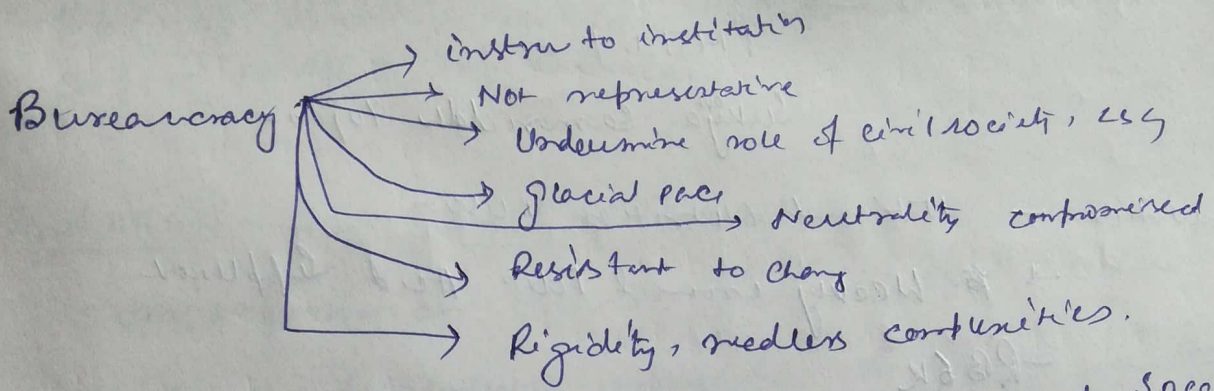 instru to institution
Bureaucracy
Not representative
Undermine role of civil society, LSG
glacial pace
Neutrality compromised
Resistant to change
Rigidity, needless complexities.